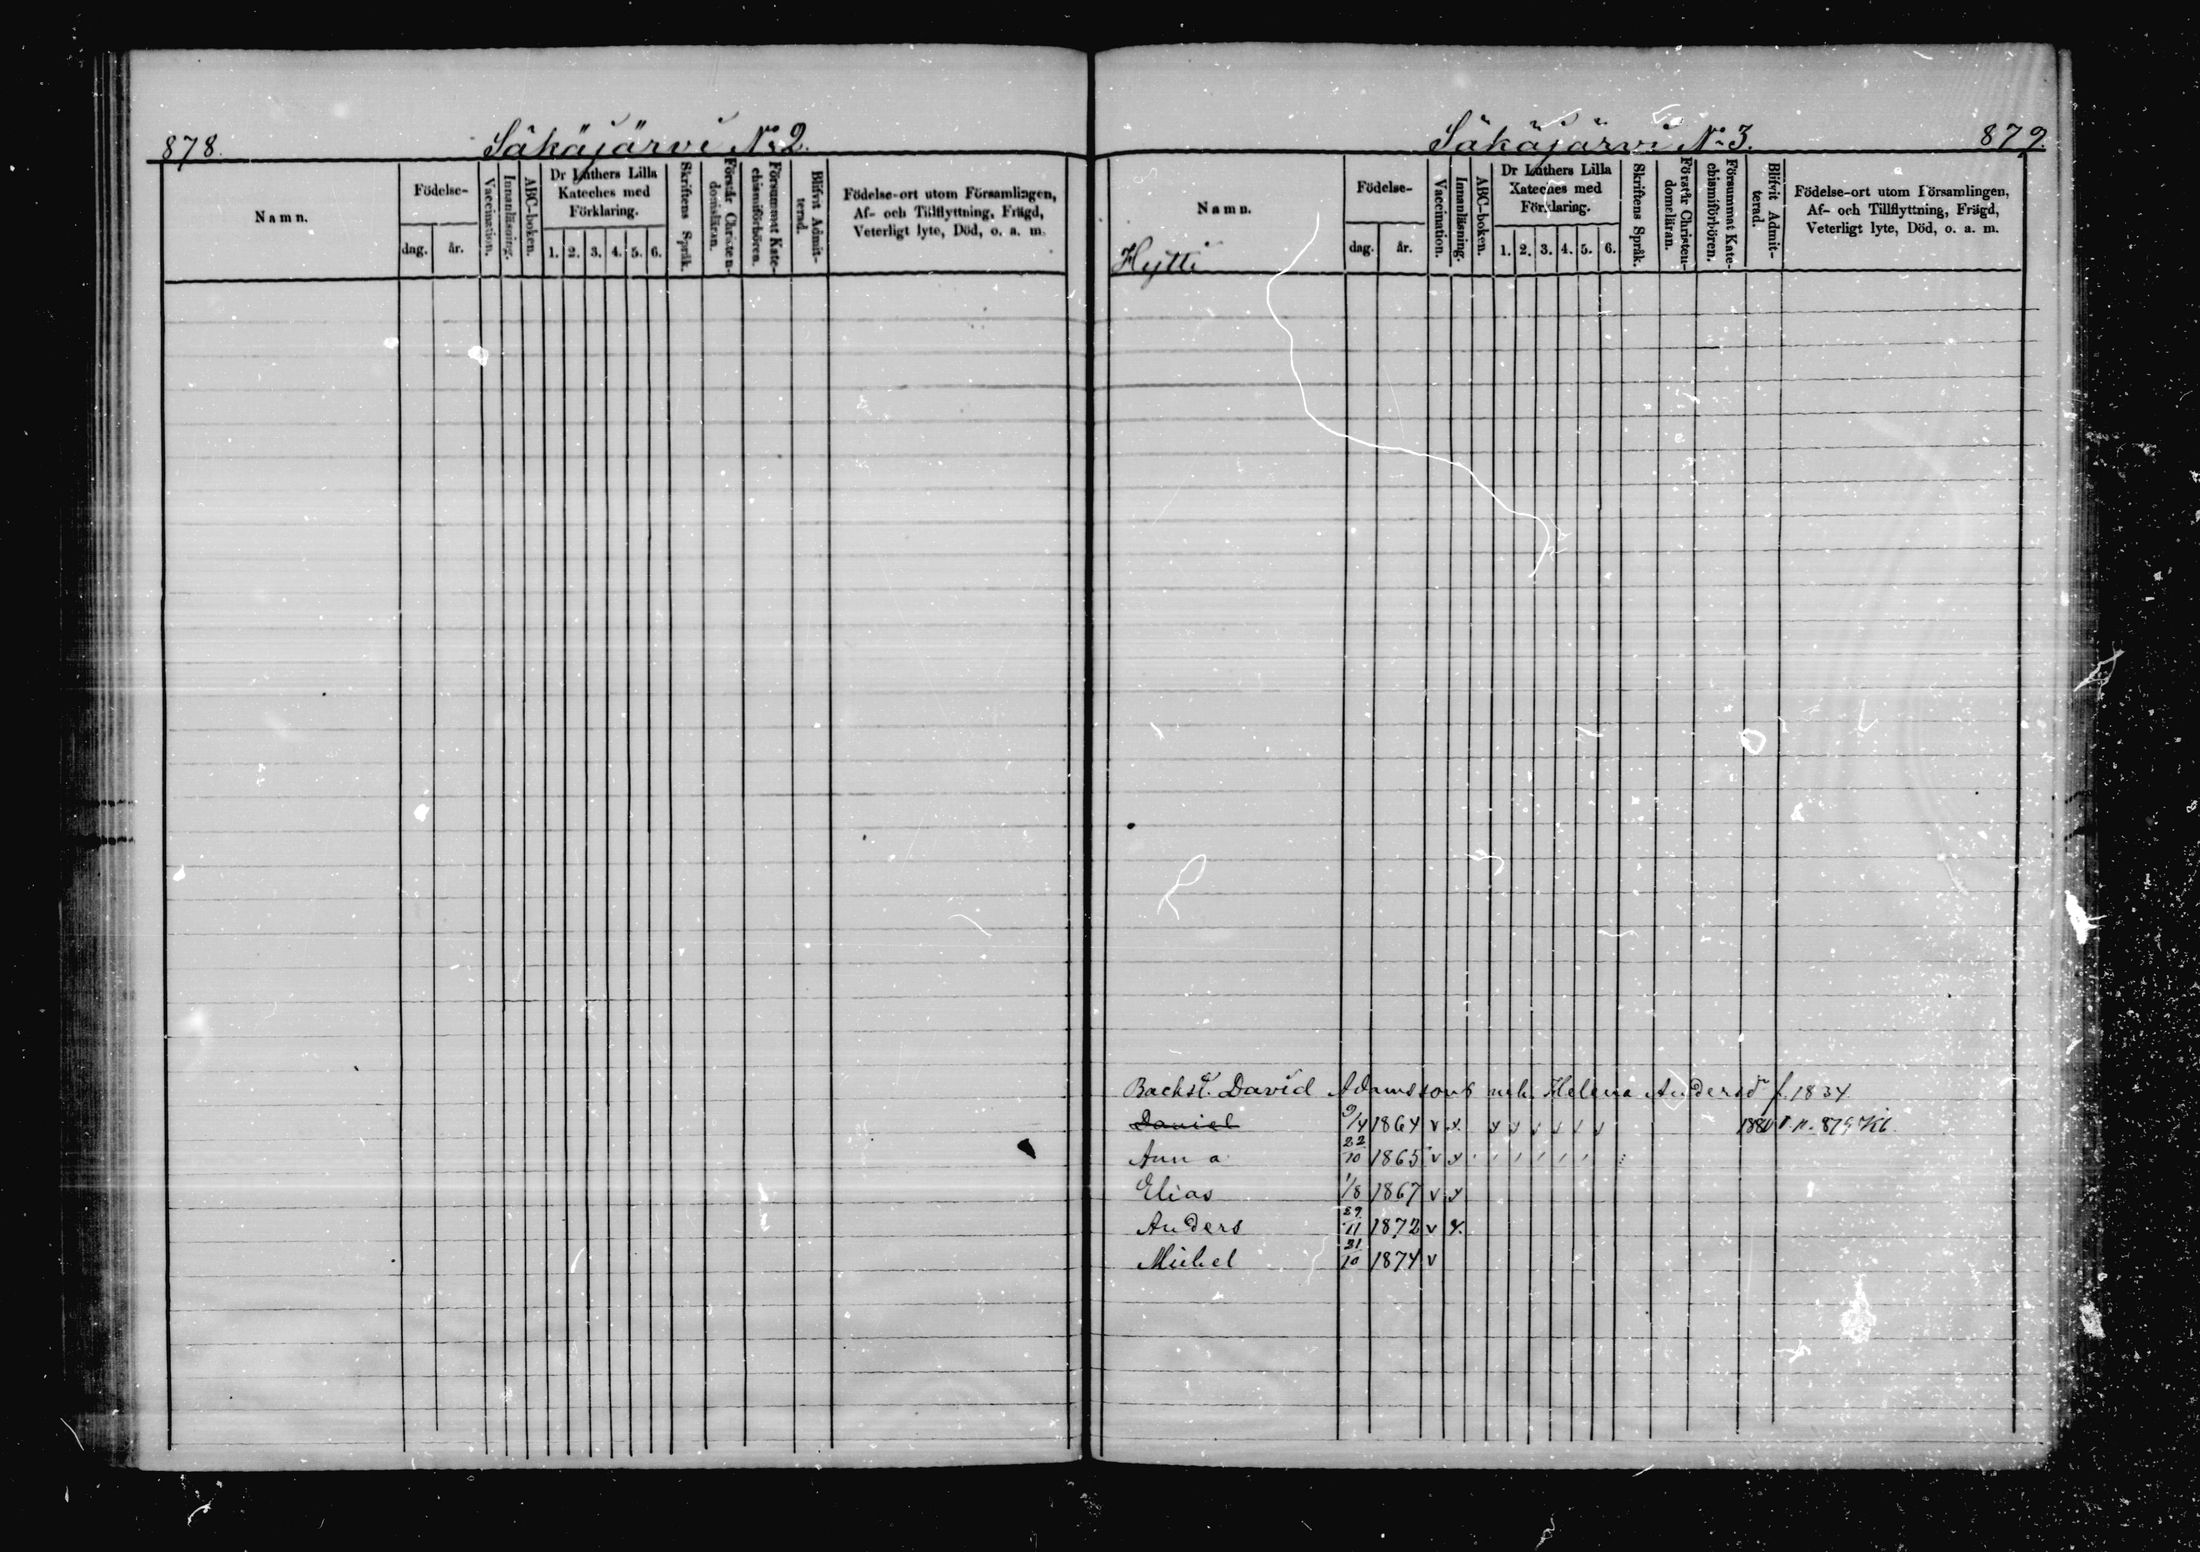 878. Säkäjärvi No 2.
Namn. Födelse- dag. år. Vaccination. Innanläsning. ABC-boken. Dr Luthers Lilla Kateches med Förklaring. 1. 2. 3. 4. 5. 6. Skriftens Språk. Förstår Christendomsläran. Försummat Katechismiförhören. Blifvit Admitterad. Födelse-ort utom Församlingen, Af- och Tillflyttning, Frägd, Veterligt lyte, Död, o. a. m.
Säkäjärvi No 3. 879.
Namn. Födelse- dag. år. Vaccination. Innanläsning. ABC-boken. Dr Luthers Lilla Kateches med Förklaring. 1. 2. 3. 4. 5. 6. Skriftens Språk. Förstår Christendomsläran. Försummat Katechismiförhören. Blifvit Admitterad. Födelse-ort utom Församlingen, Af- och Tillflyttning, Frägd, Veterligt lyte, Död, o. a. m.
Hytti
Backst. David Adamssons och Helena Andersdr f. 1834
Daniel 9/4 1864 v x 1880 879
Anna 22/10 1865 v x
Elias 1/8 1867 v x
Anders 29/11 1872 v x.
Michel 21/10 1874 v